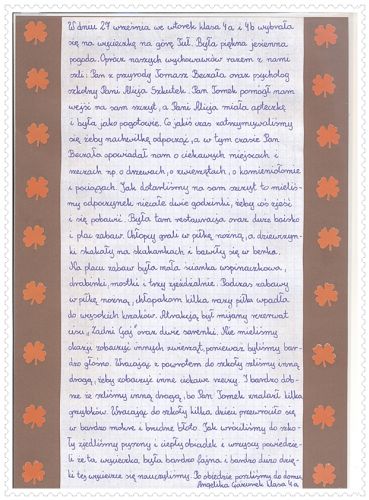 W dniu 27 września we wtorek klasa 4a i 4b wybrała
się na wycieczkę na górę Tuł. Była piękna jesienna
pogoda. Oprócz naszych wychowawców razem z nami
szli: Pan z przyrody Tomasz Beczała oraz psycholog
szkolny Pani Alicja Szkutek. Pan Tomek pomógł nam
wejść na sam szczyt, a Pani Alicja miała apteczkę
i była jako pogotowie. Co jakiś czas zatrzymywaliśmy
się żeby na chwilkę odpocząć, a w tym czasie Pan
Beczała opowiadał nam o ciekawych miejscach i
rzeczach np. o drzewach, o zwierzętach, o kamieniołomie
i pociągach. Jak dotarliśmy na sam szczyt to mieliś-
my odpoczynek niecałe dwie godzinki, żeby coś zjeść
i się pobawić. Była tam restauracja oraz duże boisko
i plac zabaw. Chłopcy grali w piłkę nożną, a dziewczyn-
ki skakały na skakankach i bawiły się w berka.
Na placu zabaw była mała ścianka wspinaczkowa,
drabinki, mostki i trzy zjeżdżalnie. Podczas zabawy
w piłkę nożną, chłopakom kilka razy piłka wpadła
do wysokich krzaków. Atrakcją był mijany rezerwat
cisu „Zadni Gaj” oraz dwie sarenki. Nie mieliśmy
okazji zobaczyć innych zwierząt, ponieważ byliśmy bar-
dzo głośno. Wracając z powrotem do szkoły szliśmy inną
drogą, żeby zobaczyć inne ciekawe rzeczy. I bardzo dob-
rze że szliśmy inną drogą, bo Pan Tomek znalazł kilka
grzybków. Wracając do szkoły kilka dzieci przewróciło się
w bardzo mokre i brudne błoto. Jak wróciliśmy do szko-
ły zjedliśmy pyszny i ciepły obiadek i wszyscy powiedzie-
li że ta wycieczka była bardzo fajna i bardzo dużo dzię-
ki tej wycieczce się nauczyliśmy. Po obiedzie poszliśmy do domu.
Angelika klasa 4a